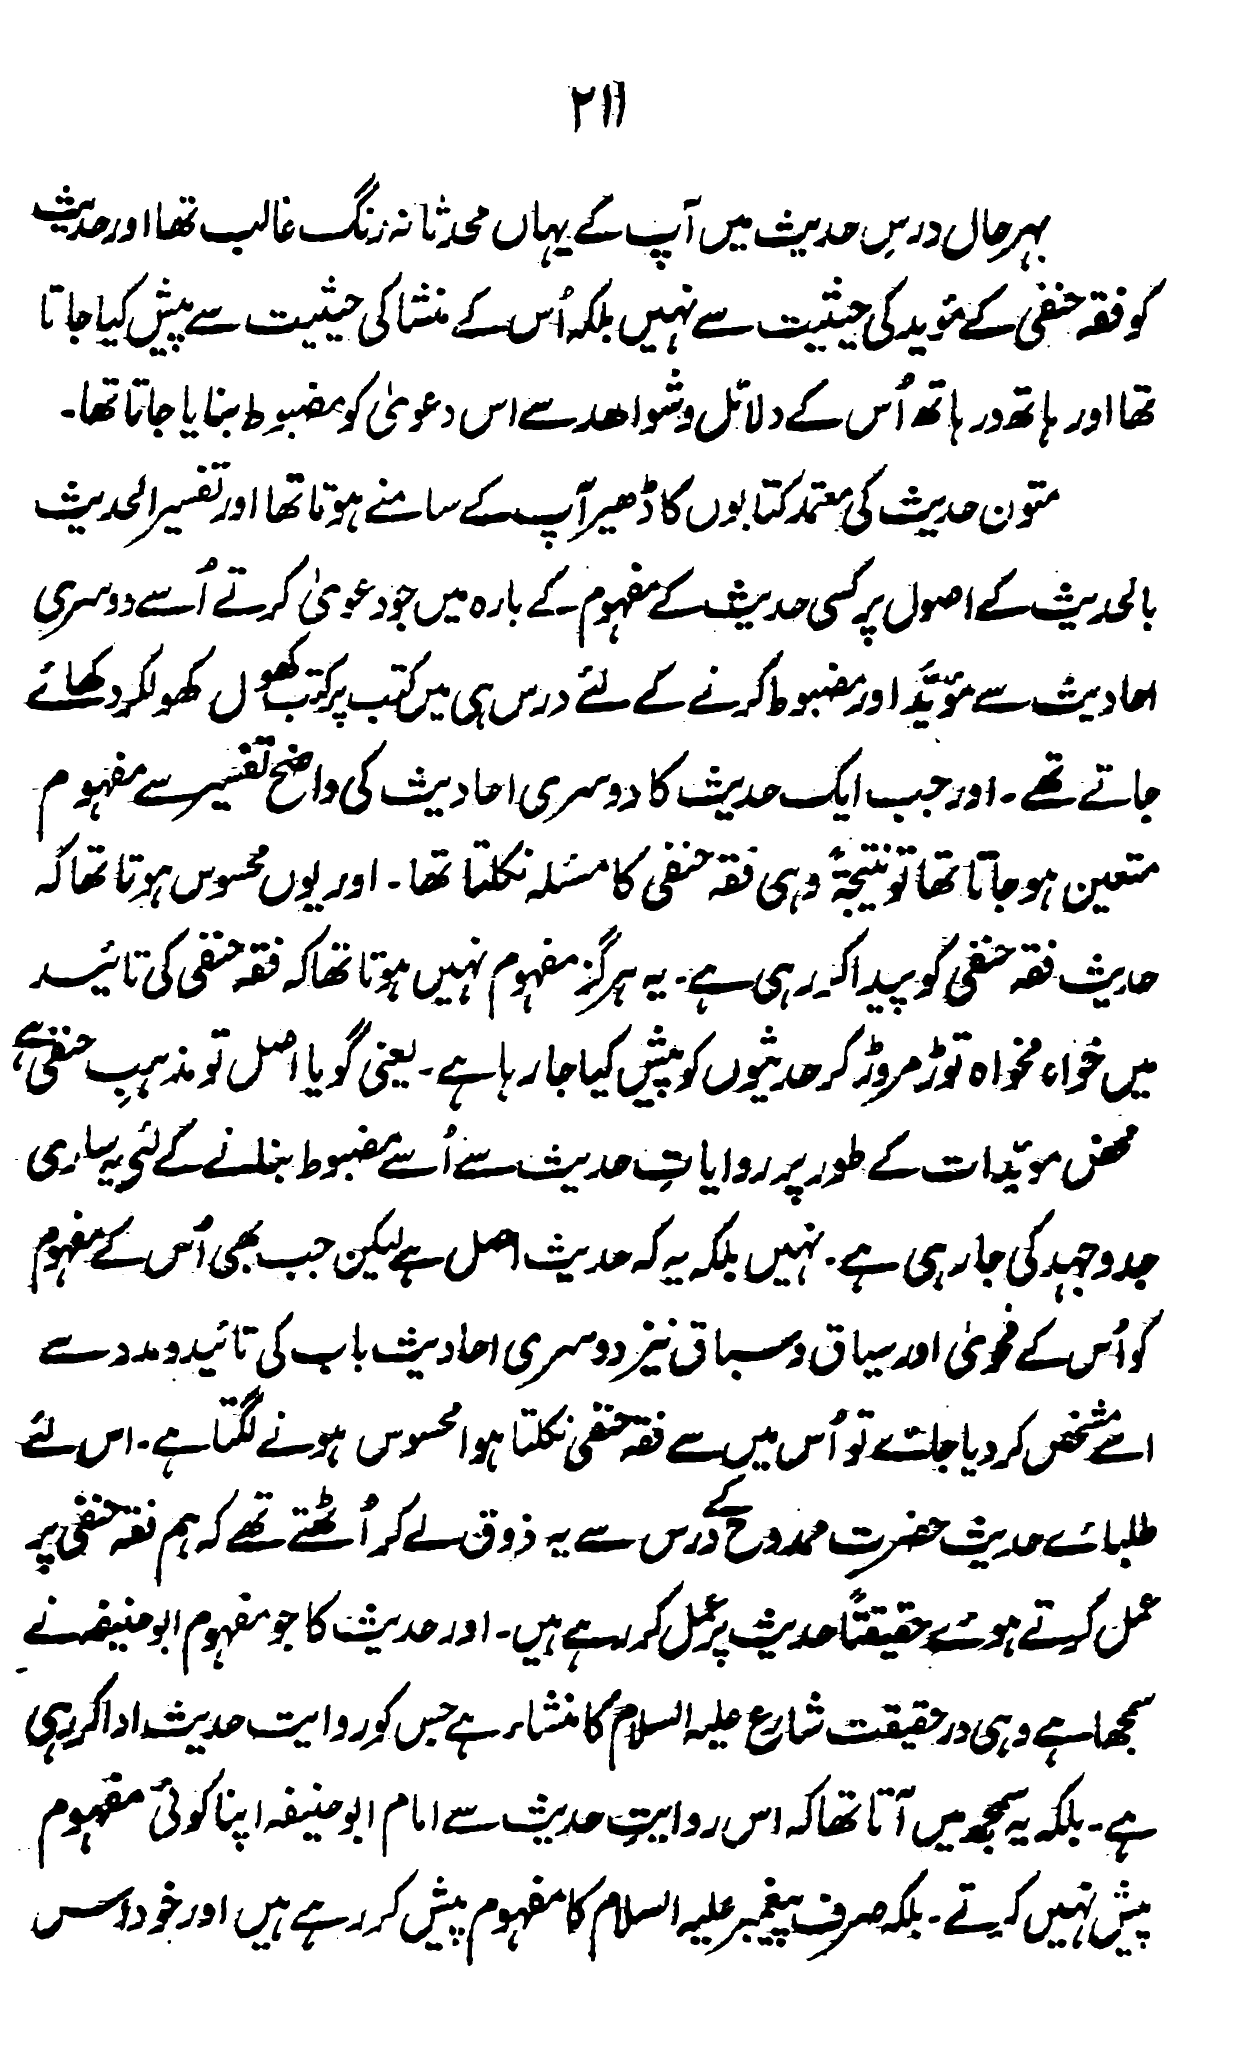 ۲۱۱
بہرحال درسِ حدیث میں آپ کے یہاں محدثانہ رنگ غالب تھا اور حدیث
کو فقہ حنفی کے مؤید کی حیثیت سے نہیں بلکہ اُس کے منشا کی حیثیت سے پیش کیا جاتا
تھا اور ہاتھ در ہاتھ اُس کے دلائل و شواھد سے اس دعویٰ کو مضبوط بنایا جاتا تھا۔
متون حدیث کی معتمد کتابوں کا ڈھیر آپ کے سامنے ہوتا تھا اور تفسیر الحدیث
بالحدیث کے اصول پر کسی حدیث کے مفہوم کے بارہ میں جو دعویٰ کرتے اُسے دوسری
احادیث سے مؤیَّد اور مضبوط کرنے کے لئے درس ہی میں کتب پر کتب کھول کھولکر دکھائے
جاتے تھے۔ اور جب ایک حدیث کا دوسری احادیث کی واضح تفسیر سے مفہوم
متعین ہو جاتا تھا تو نتیجۃً وہی فقہ حنفی کا مسئلہ نکلتا تھا۔ اور یوں محسوس ہوتا تھا کہ
حدیث فقہ حنفی کو پیدا کر رہی ہے۔ یہ ہرگز مفہوم نہیں ہوتا تھا کہ فقہ حنفی کی تائید
میں خواہ مخواہ توڑ مروڑ کر حدیثوں کو پیش کیا جا رہا ہے۔ یعنی گویا اصل تو مذہبِ حنفی ہے
محض مویّدات کے طور پر روایاتِ حدیث سے اُسے مضبوط بنانے کے لئے یہ ساری
جد و جہد کی جا رہی ہے۔ نہیں بلکہ یہ کہ حدیث اصل ہے لیکن جب بھی اُس کے مفہوم
کو اُس کے فحویٰ اور سیاق و سباق نیز دوسری احادیث باب کی تائید و مدد سے
اسے مشخص کر دیا جائے تو اُس میں سے فقہ حنفی نکلتا ہوا محسوس ہونے لگتا ہے۔ اس لئے
طلبائے حدیث حضرت ممدوحؒ کے درس سے یہ ذوق لے کر اُٹھتے تھے کہ ہم فقہ حنفی پر
عمل کرتے ہوئے حقیقتاً حدیث پر عمل کر رہے ہیں۔ اور حدیث کا جو مفہوم ابوحنیفہ نے
سمجھا ہے وہی درحقیقت شارع علیہ السلام کا منشاء ہے جس کو روایت حدیث ادا کر رہی
ہے۔ بلکہ یہ سمجھ میں آتا تھا کہ اس روایتِ حدیث سے امام ابو حنیفہ اپنا کوئی مفہوم
پیش نہیں کرتے۔ بلکہ صرف پیغمبر علیہ السلام کا مفہوم پیش کر رہے ہیں اور خود اس